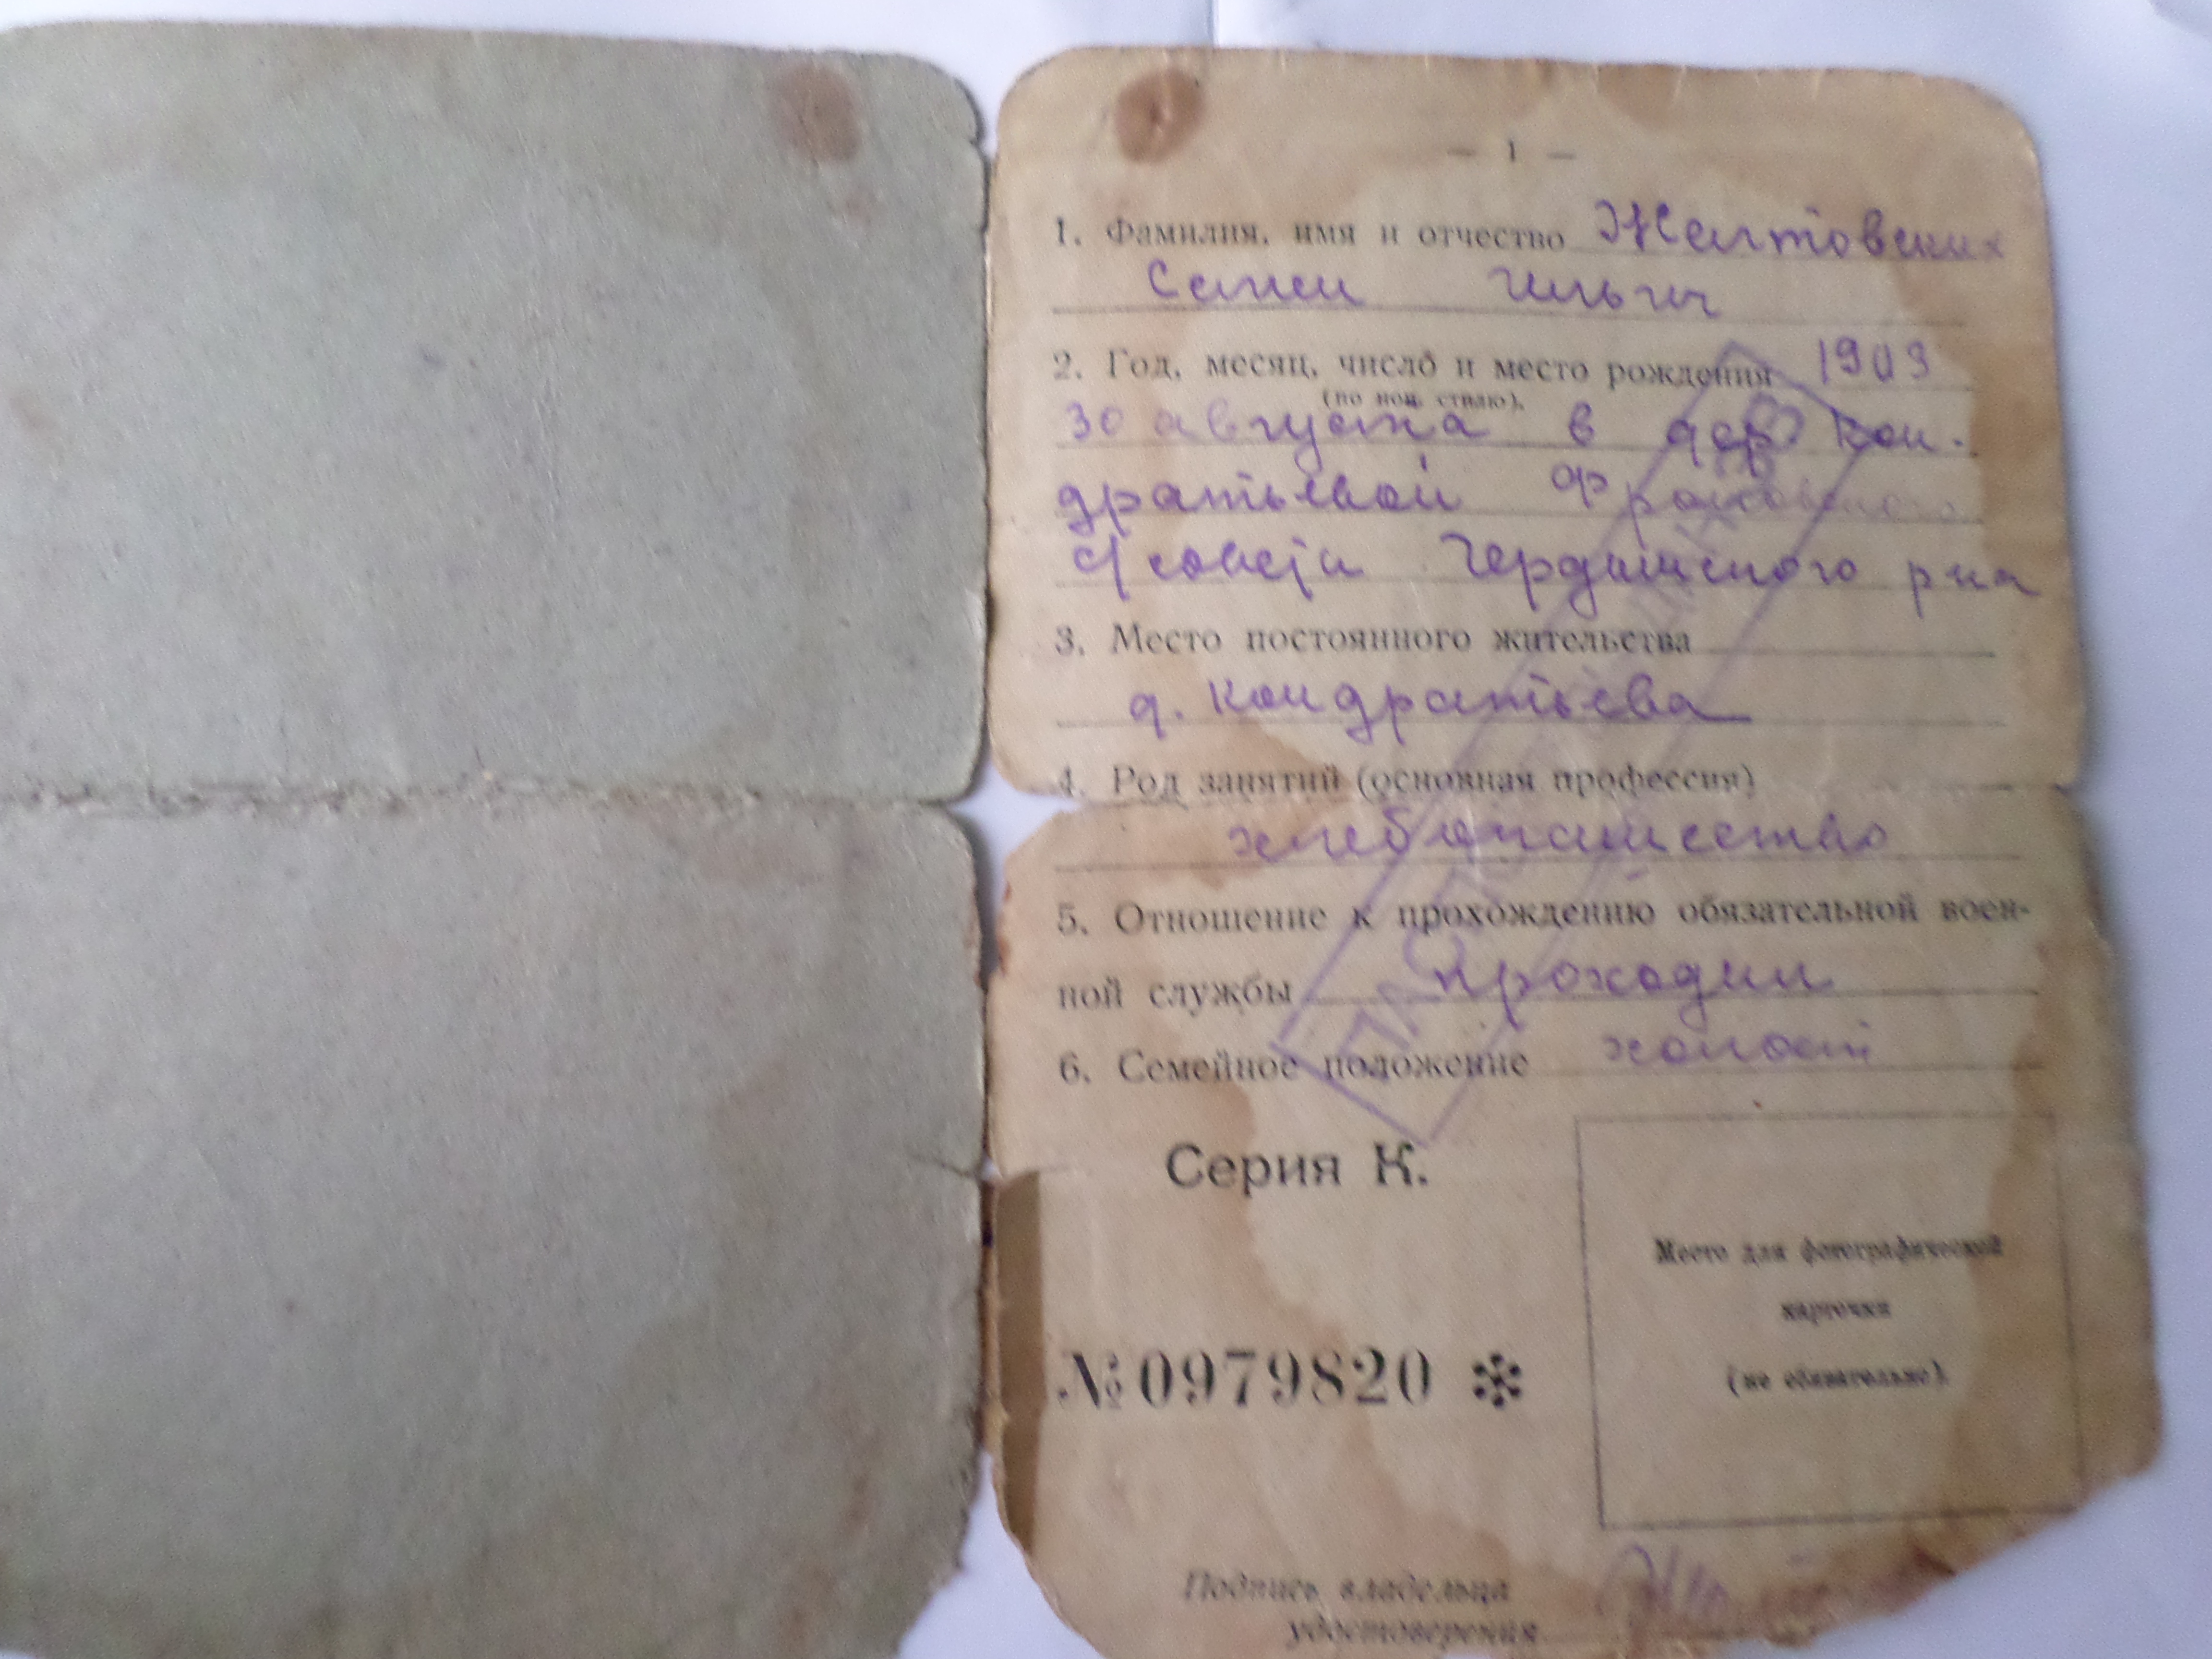 — 1 —
1. Фамилия, имя и отчество Желтовских
Семен Ильич
2. Год, месяц, число и место рождения 1903
(по нов. стилю).
30 августа в дер Кон-
дратьевой
с/совета Чердынского р на
3. Место постоянного жительства
д. Кондратьева
4. Род занятий (основная профессия)
хлебопашество
5. Отношение к прохождению обязательной воен-
ной службы проходил
6. Семейное положение холост
Серия К.
Место для фотографической
карточки
(не обязательно).
№ 0979820 *
Подпись владельца
удостоверения